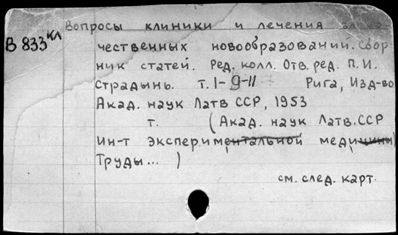 Вопросы клиники и лечения зло
В 833 кл
чественных новообразований. Сбор
ник статей. Ред. колл. Отв. ред. П. И.
Страдынь. т. I- 9-11 Рига, Изд-во
Акад. наук Латв ССР, 1953
т. (Акад. наук Латв. ССР
Ин-т экспериментальной медицины
Труды... )
см. след. карт.